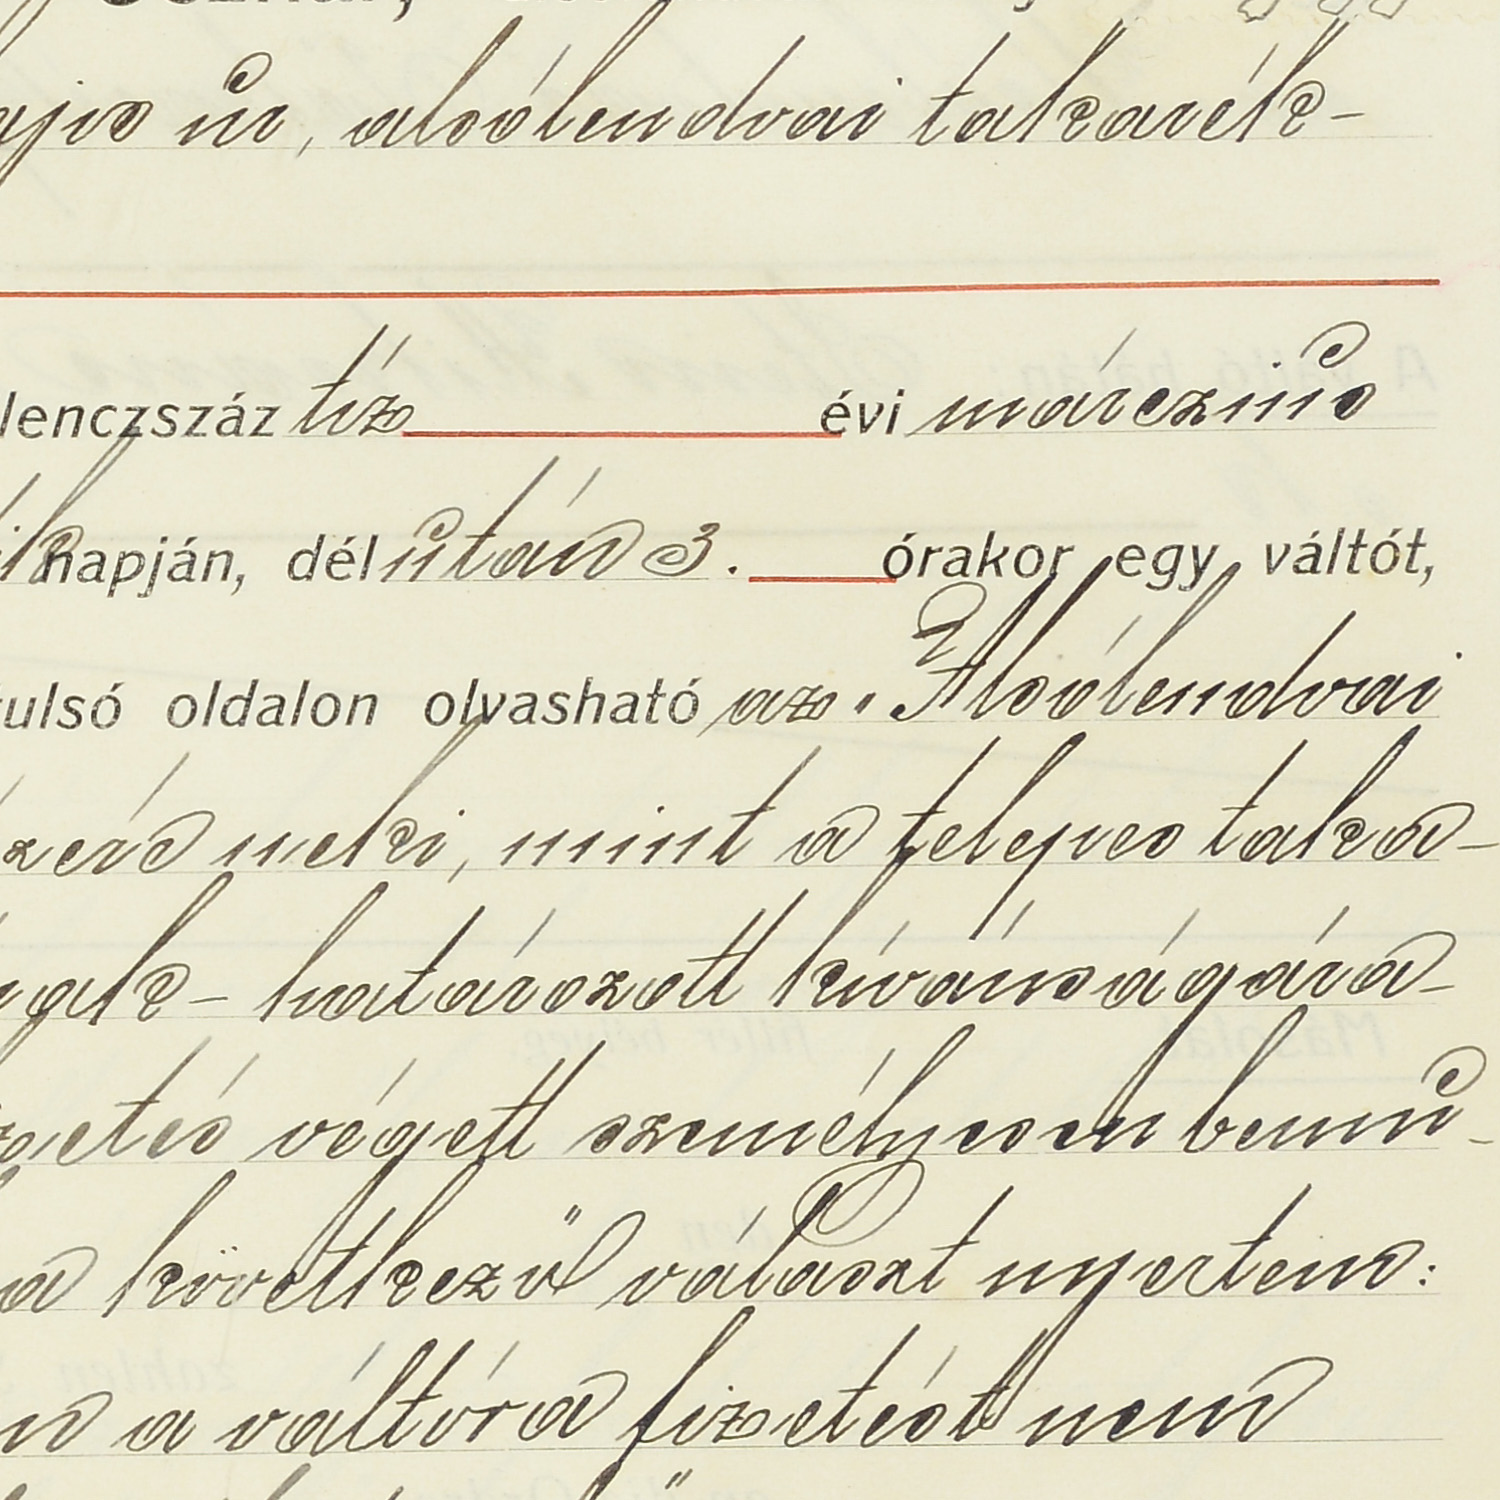 úr, alsólendvai takarék-
lenczszáz tíz évi márczius
napján, délután 3. órakor egy váltót,
tulsó oldalon olvasható az „Alsólendvai
neki, mint a telepes taka-
határozott kívánságára-
végett személyesen bemu-
a következő választ nyertem:
a váltóra fizetést nem